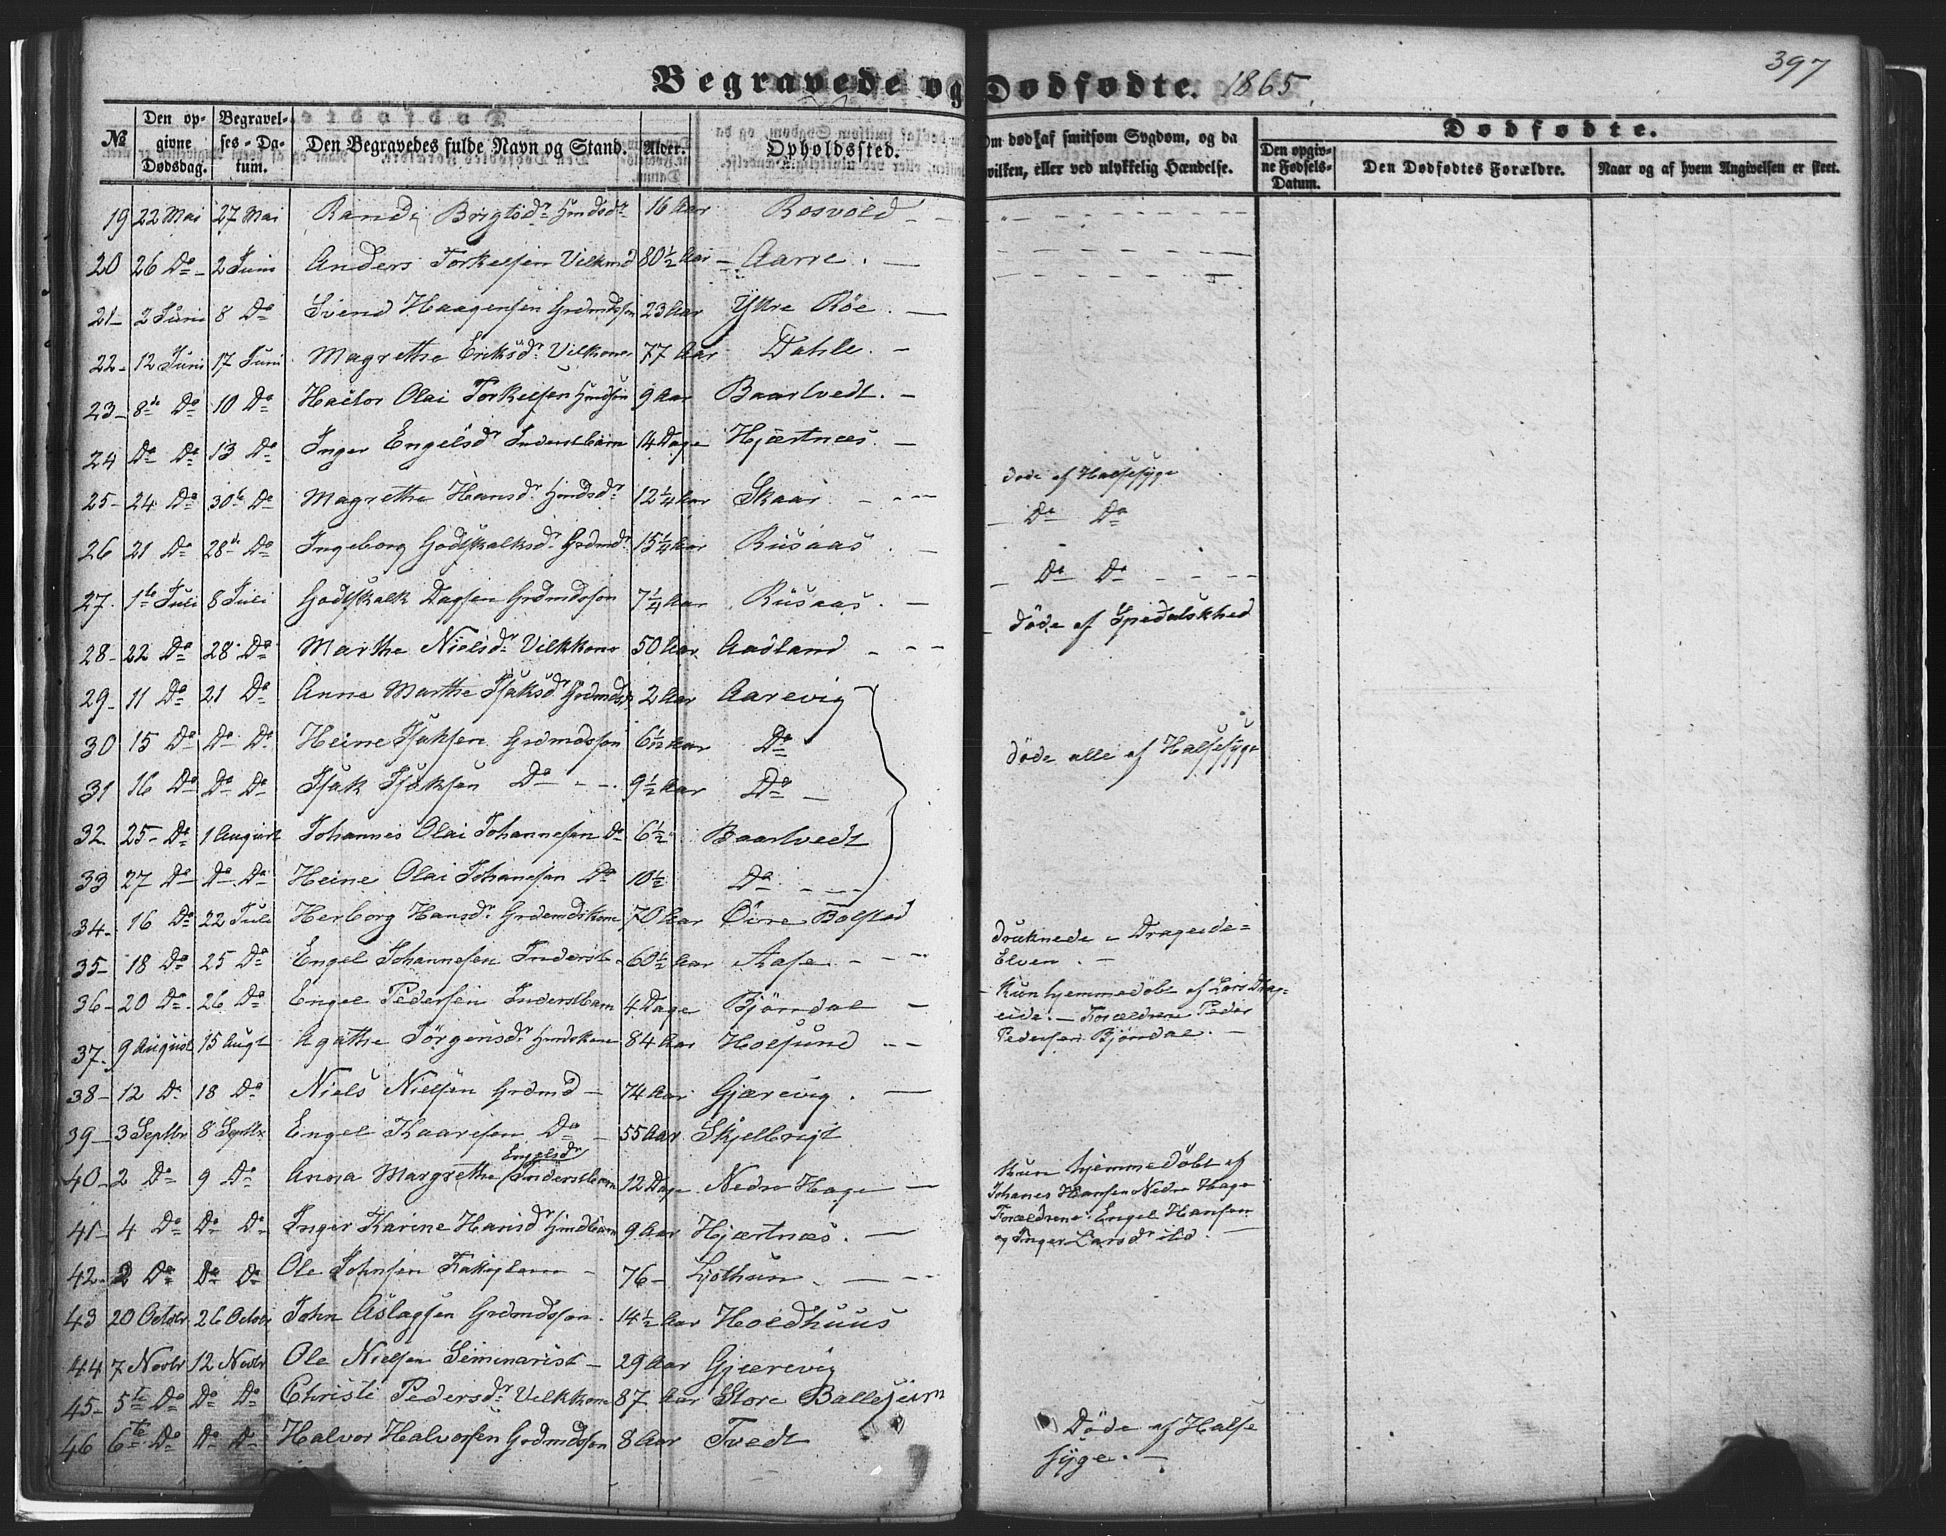 397
Begravede og Dødfødte. 1865.
№ Den opgivne Dødsdag. Begravelses-Datum. Den Begravedes fulde Navn og Stand. Alder. Opholdssted. Om død af smitsom Sygdom, og da hvilken, eller ved ulykkelig Hændelse. Dødfødte.
Den opgivne Fødsels-Datum. Den Dødfødtes Forældre. Naar og af hvem Angivelsen er skeet.
19 22 Mai 27 Mai Randi 16 Aar Rosvold
20 26 Do 2 Juni Anders Torkelsen Vilkmd 80½ Aar Aarre
21 2 Juni 8 Do Svend Haagensen Grdmdssøn 23 Aar Yttre Røe
22 12 Juni 17 Juni Magrethe Eriksdr Vilkkone 77 Aar Dahle
23 8de Do 10 Do Olai Torkelsen 9 Aar Baartvedt
24 Do Do 13 Do Inger Engelsdr Inderstbarn 14 Dage Hjærtnæs
25 24 Do 30te Do Magrethe Hansdr Hmdsdr 12¼ Aar Skaar døde af Halsesyge
26 21 Do 28de Do Ingeborg Godtskalksdr Grdmdr 15¼ Aar Rusaas Do Do
27 1ste Juli 8 Juli Godtskalk Dagsen Grdmdssøn 7¼ Aar Rusaas Do Do
28 22 Do 28 Do Marthe Nielsdr Vilkkone 50 Aar Aasland døde af Spedalskhed
29 11 Do 21 Do Anne Marthe Isaksdr Grdmdsdr 2 Aar Aarevig
30 15 Do Do Do Heine Isaksen Grdmdssøn 6½ Aar Do døde alle af Halsesyge
31 16 Do Do Do Isak Isaksen Do 9½ Aar Do
32 25 Do 1 August Johannes Olai Johannesen Do 6½ Baartvedt
33 27 Do Do Do Heine Olai Johanesen Do 10½ Do
34 16 Do 22 Juli Herborg Hansdr Grdmdskone 70 Aar Øvre Bolstad
35 18 Do 25 Do Engel Johannesen Inderst 60½ Aar Aase druknede i Drageide-
Elven.
36 20 Do 26 Do Engel Pedersen Inderstbarn 4 Dage Bjørndal Kun hjemmedøbt af Lars Drag-
eide. Forældrene Peder
37 9 August 15 Augt Agathe Jørgensdr Hmdskone 84 Aar Holsund Pedersen Bjørndal.
38 12 Do 18 Do Niels Nielsen Grdmd 74 Aar Gjærevig
39 3 Septbr 8 Septbr Engel Kaaresen Do 55 Aar Skjelbreit
40 2 Do 9 Do Anna Margrethe Engelsdr Inderstbarn 12 Dage Nedre Hage Kun hjemmedøbt af
Johanes Hansen Nedre Hage
41 4 Do Do Do Inger Karine Hansdr Hmdbarn 9 Aar Hjærtnæs Forældrene: Engel Hansen
og Inger Larsdr
42 2 Do Do Do Ole Johnsen 76 Ljothun
43 20 Octobr 26 Octobr John Aslagsen Grdmdssøn 14½ Aar Holdhuus
44 7 Novbr 12 Novbr Ole Nielsen Seminarist 29 Aar Gjærevig
45 5te Do Do Do Christi Pedersdr Vilkkone 87 Aar Store Ballesem
46 6te Do Do Do Halvor Halvorsen Grdmdssøn 8 Aar Tvedt Døde af Halse
syge.